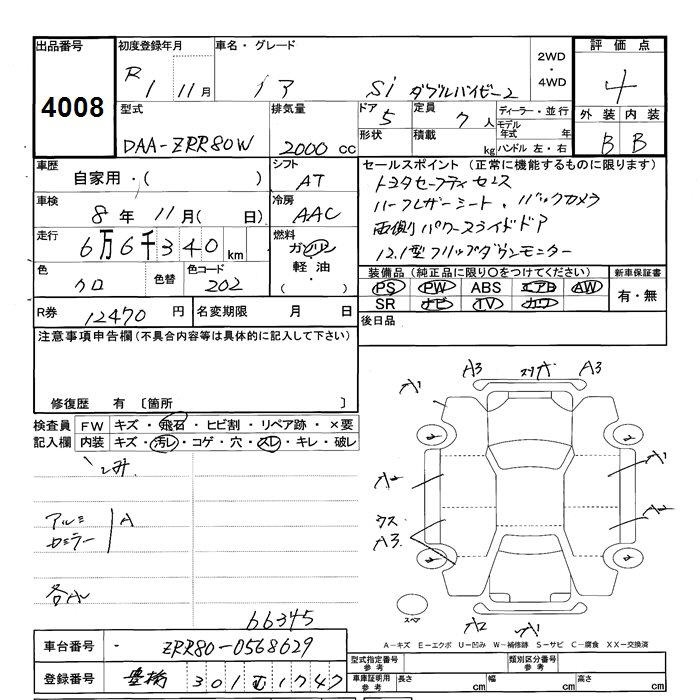 出品番号 初度登録年月 車名・グレード 2WD ・ 4WD 評価点
4008 R 1 11月 ノア Si ダブルバイビー2 4
型式 排気量 ドア 定員 ディーラー・並行 外装 内装
DAA-ZRR80W 2000 cc 5 7人 モデル年式 年 B B
形状 積載 kg ハンドル 左・右
車歴 自家用・( ) シフト AT セールスポイント (正常に機能するものに限ります)
車検 8年 11月( 日) 冷房 AAC トヨタセーフティセンス
ハーフレザーシート、バックカメラ
走行 6万6千340 km 燃料 ガソリン 軽油 両側パワースライドドア
12.1型フリップダウンモニター
色 クロ 色替 色コード 202 装備品 (純正品に限り〇をつけてください) 新車保証書
PS PW ABS エアB AW 有・無
SR ナビ TV カワ
R券 12470 円 名変期限 月 日 後日品
注意事項申告欄(不具合内容等は具体的に記入して下さい)
修復歴 有 〔箇所 〕
検査員記入欄 FW キズ・飛石・ヒビ割・リペア跡・×要
内装 キズ・汚レ・コゲ・穴・スレ・キレ・破レ
シミ
アルミ A
各A
66345
A1 A3 A A3 A1
A2 A2
A3
A2 A1
スペア
A-キズ E-エクボ U-凹み W-補修跡 S-サビ C-腐食 XX-交換済
車台番号 - ZRR80-0568629 型式指定番号 参考 類別区分番号 参考
登録番号 豊橋 301 む 1747 車庫証明用 参考 長さ cm 幅 cm 高さ cm